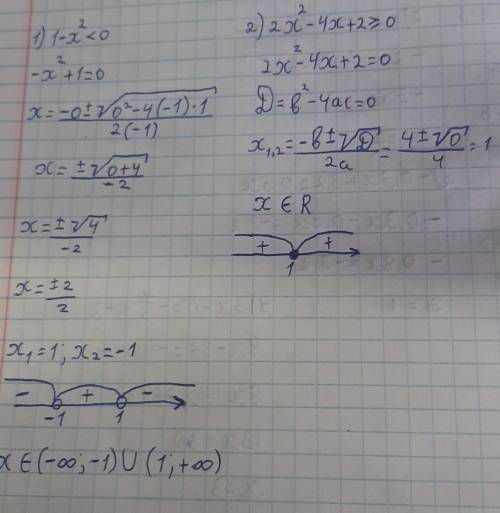 1) 1-x²<0
-x²+1=0
x=-0±√0²-4(-1)·1/2(-1)
x=±√0+4/-2
x=±√4/-2
x=±2/2
x₁=1; x₂=-1
- + -
-1 1
x∈(-∞;-1)∪(1;+∞)
2) 2x²-4x+2≥0
2x²-4x+2=0
D=b²-4ac=0
x₁,₂=-b±√D/2a=4±√0/4=1
x∈R
+ +
1